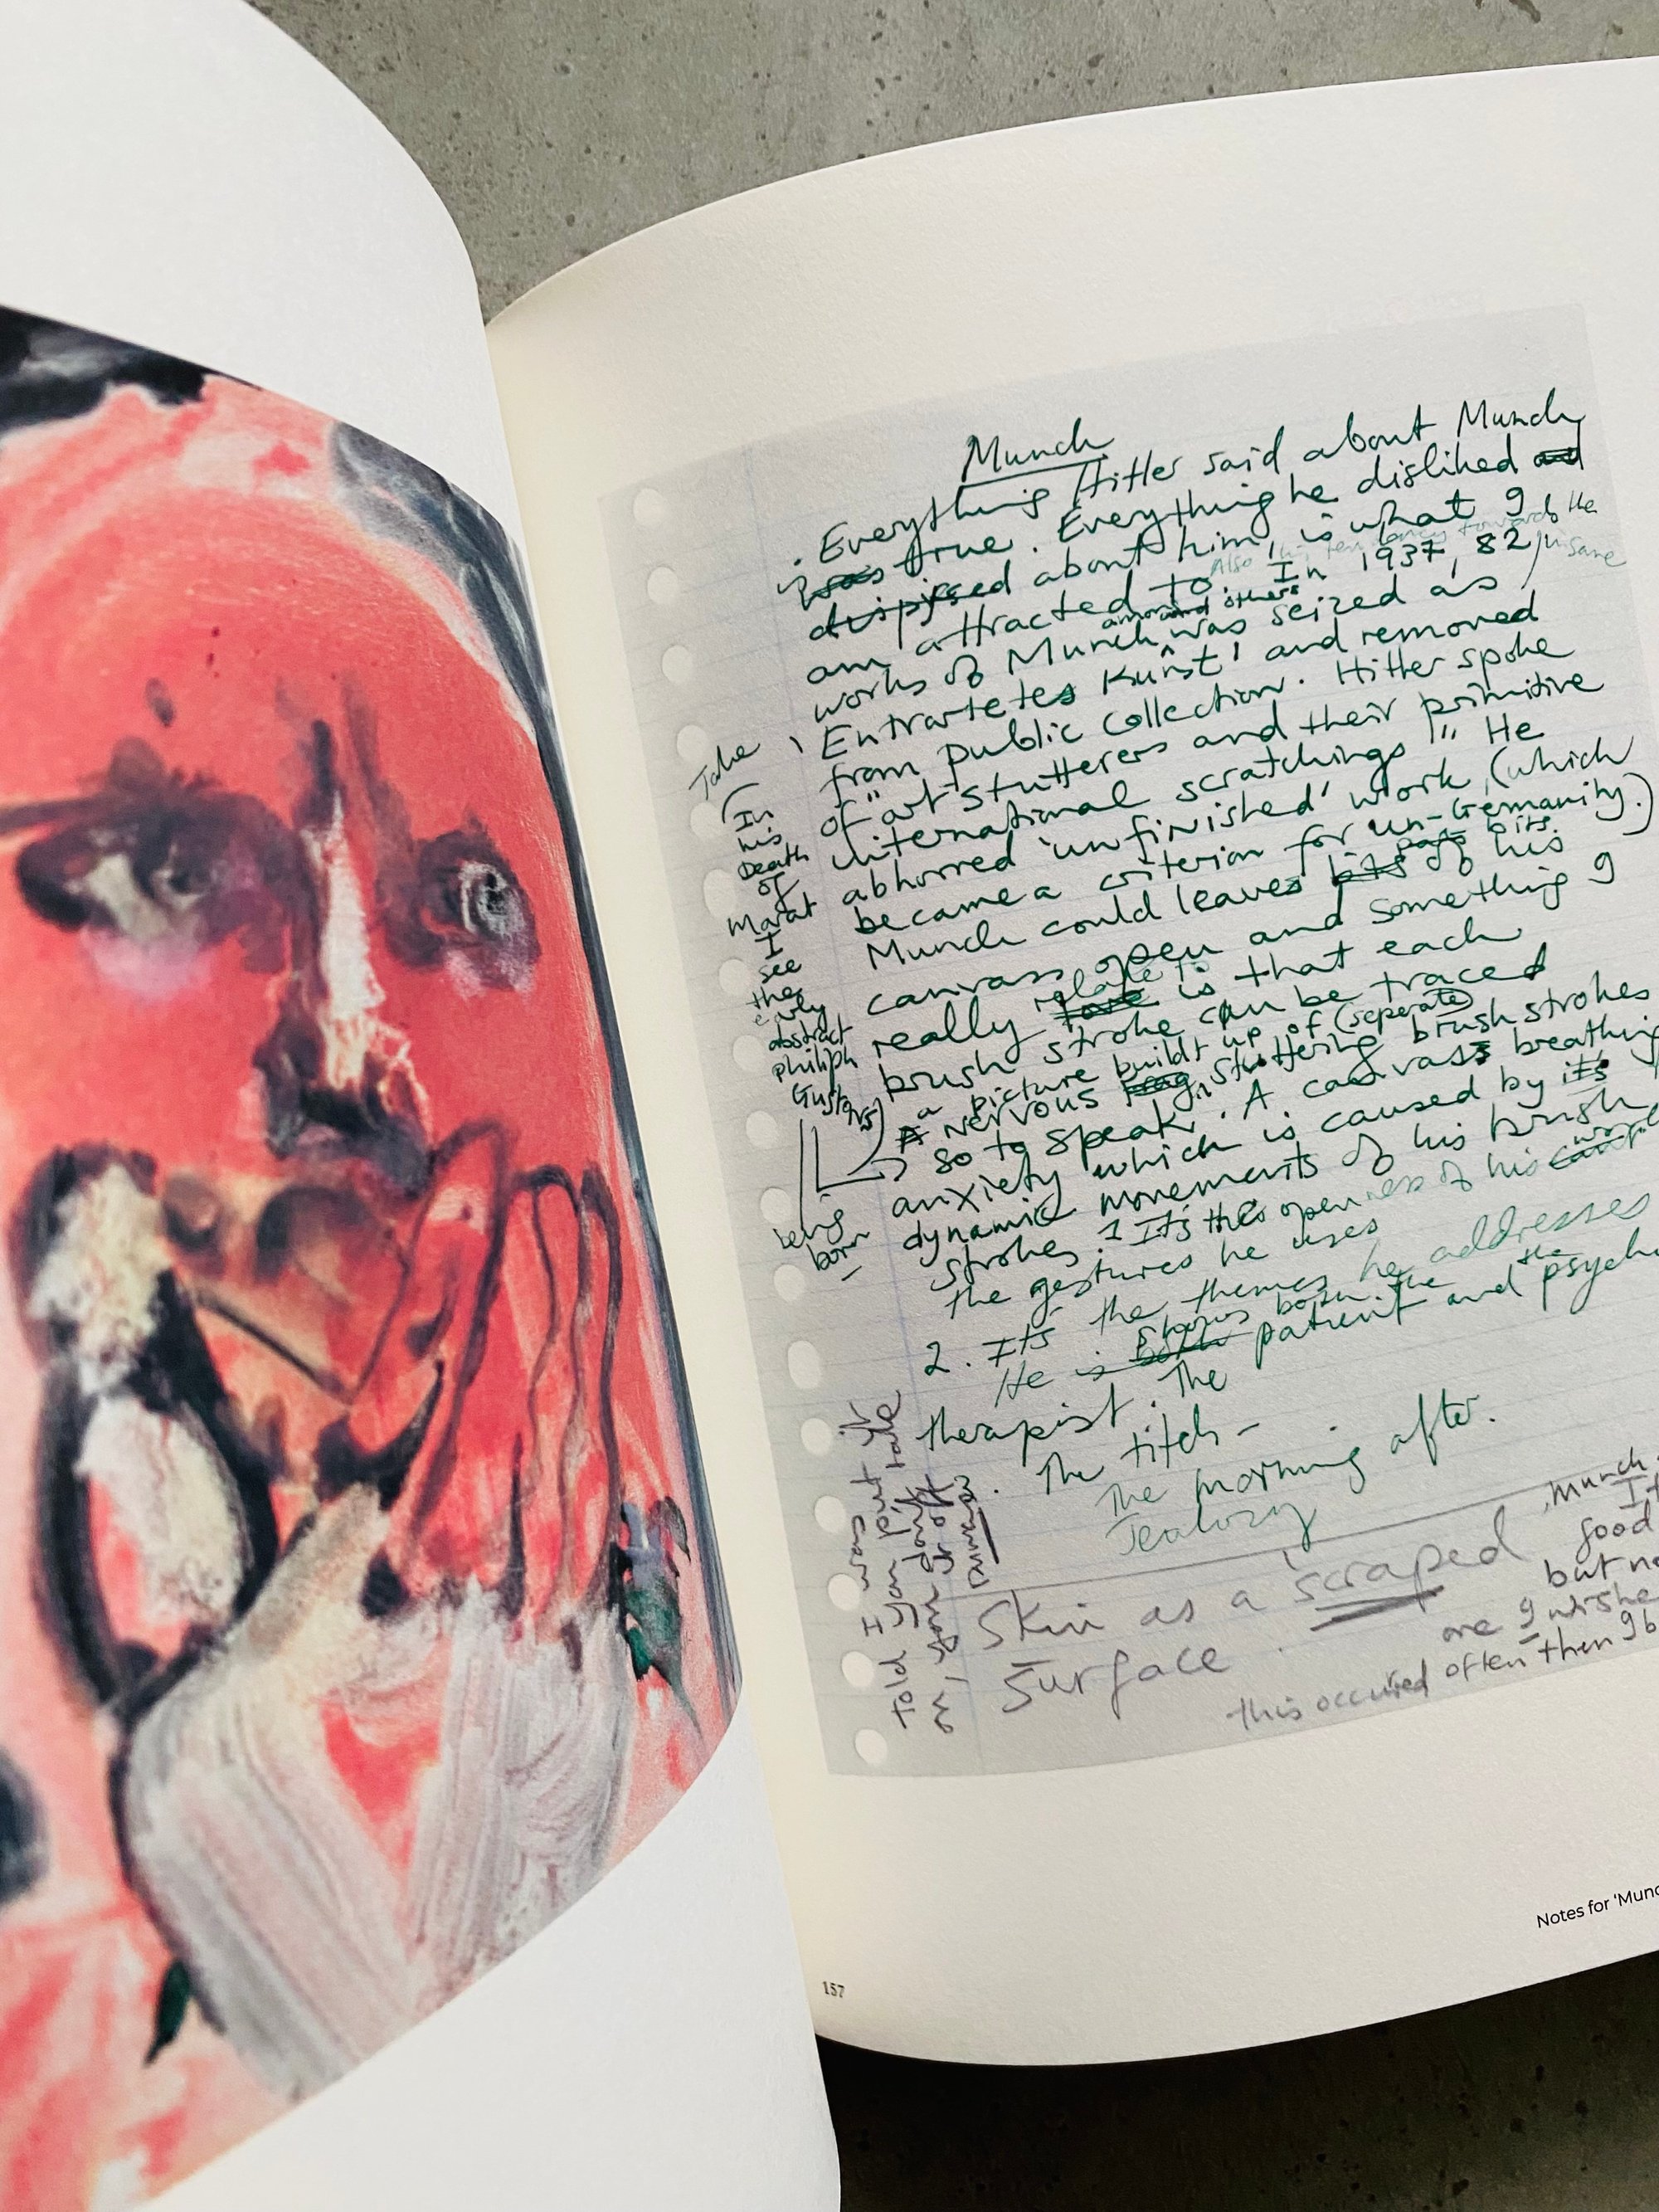 Munch
. Everything Hitler said about Munch
was true. Everything he disliked and
despised about him, is what I
Also his tendency towards the
insane
am attracted to. In 1937, 82
among others
works of Munch was seized as
'Entartetes Kunst' and removed
from public collection. Hitler spoke
of "art stutterers and their primitive
international scratchings". He
abhorred 'unfinished' work, (which
became a criterion for un-Germanity.)
Munch could leaves bits of his
parts bits
canvass open and something I
really love is that each
relate to
brush stroke can be traced
a picture buildt up of (seperate)
A nervous stuttering brush strokes
so to speak. A canvass breathing
anxiety which is caused by its
dynamic movements of his brush
strokes. 1 Its the openness of his
the gestures he uses
2. Its the themes he addresses
He is both the patient and the
shows
therapist. The
. The titch -
The morning after.
Jealousy
Take
(In
his
Death
of
Marat
I
see
the
early
abstract
philiph
Gustons)
being
born
told I was
or, you don't
Skin as a scraped
surface.
Munch
It
good
but
are I wishe
this occured often then I b
157
Notes for 'Munc